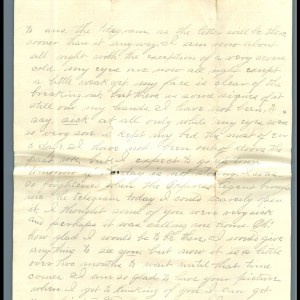 to ans the telegram as the letter will be there
sooner than it anyway. I am now about
all right with the exception of a very severe
cold. my eyes are now all right except
a little weak yet my face is clear of the
breaking out but there is some
still on my hands I have not been to
say sick at all only while my eyes were
so very sore I kept my bed the most of
days. I have just been out of doors the
past but I expect to go down
tomorrow if today is not
so frightened when the Express Agent brought
me the telegram today I could scarcely open
it I thought some of you were very sick
and perhaps it was calling me home. Oh!
how glad I would be to be there. I would give
anything to see you but now it is a little
over two months to wait until that time
comes I am so glad to have your picture
when I get to thinking of you I can get